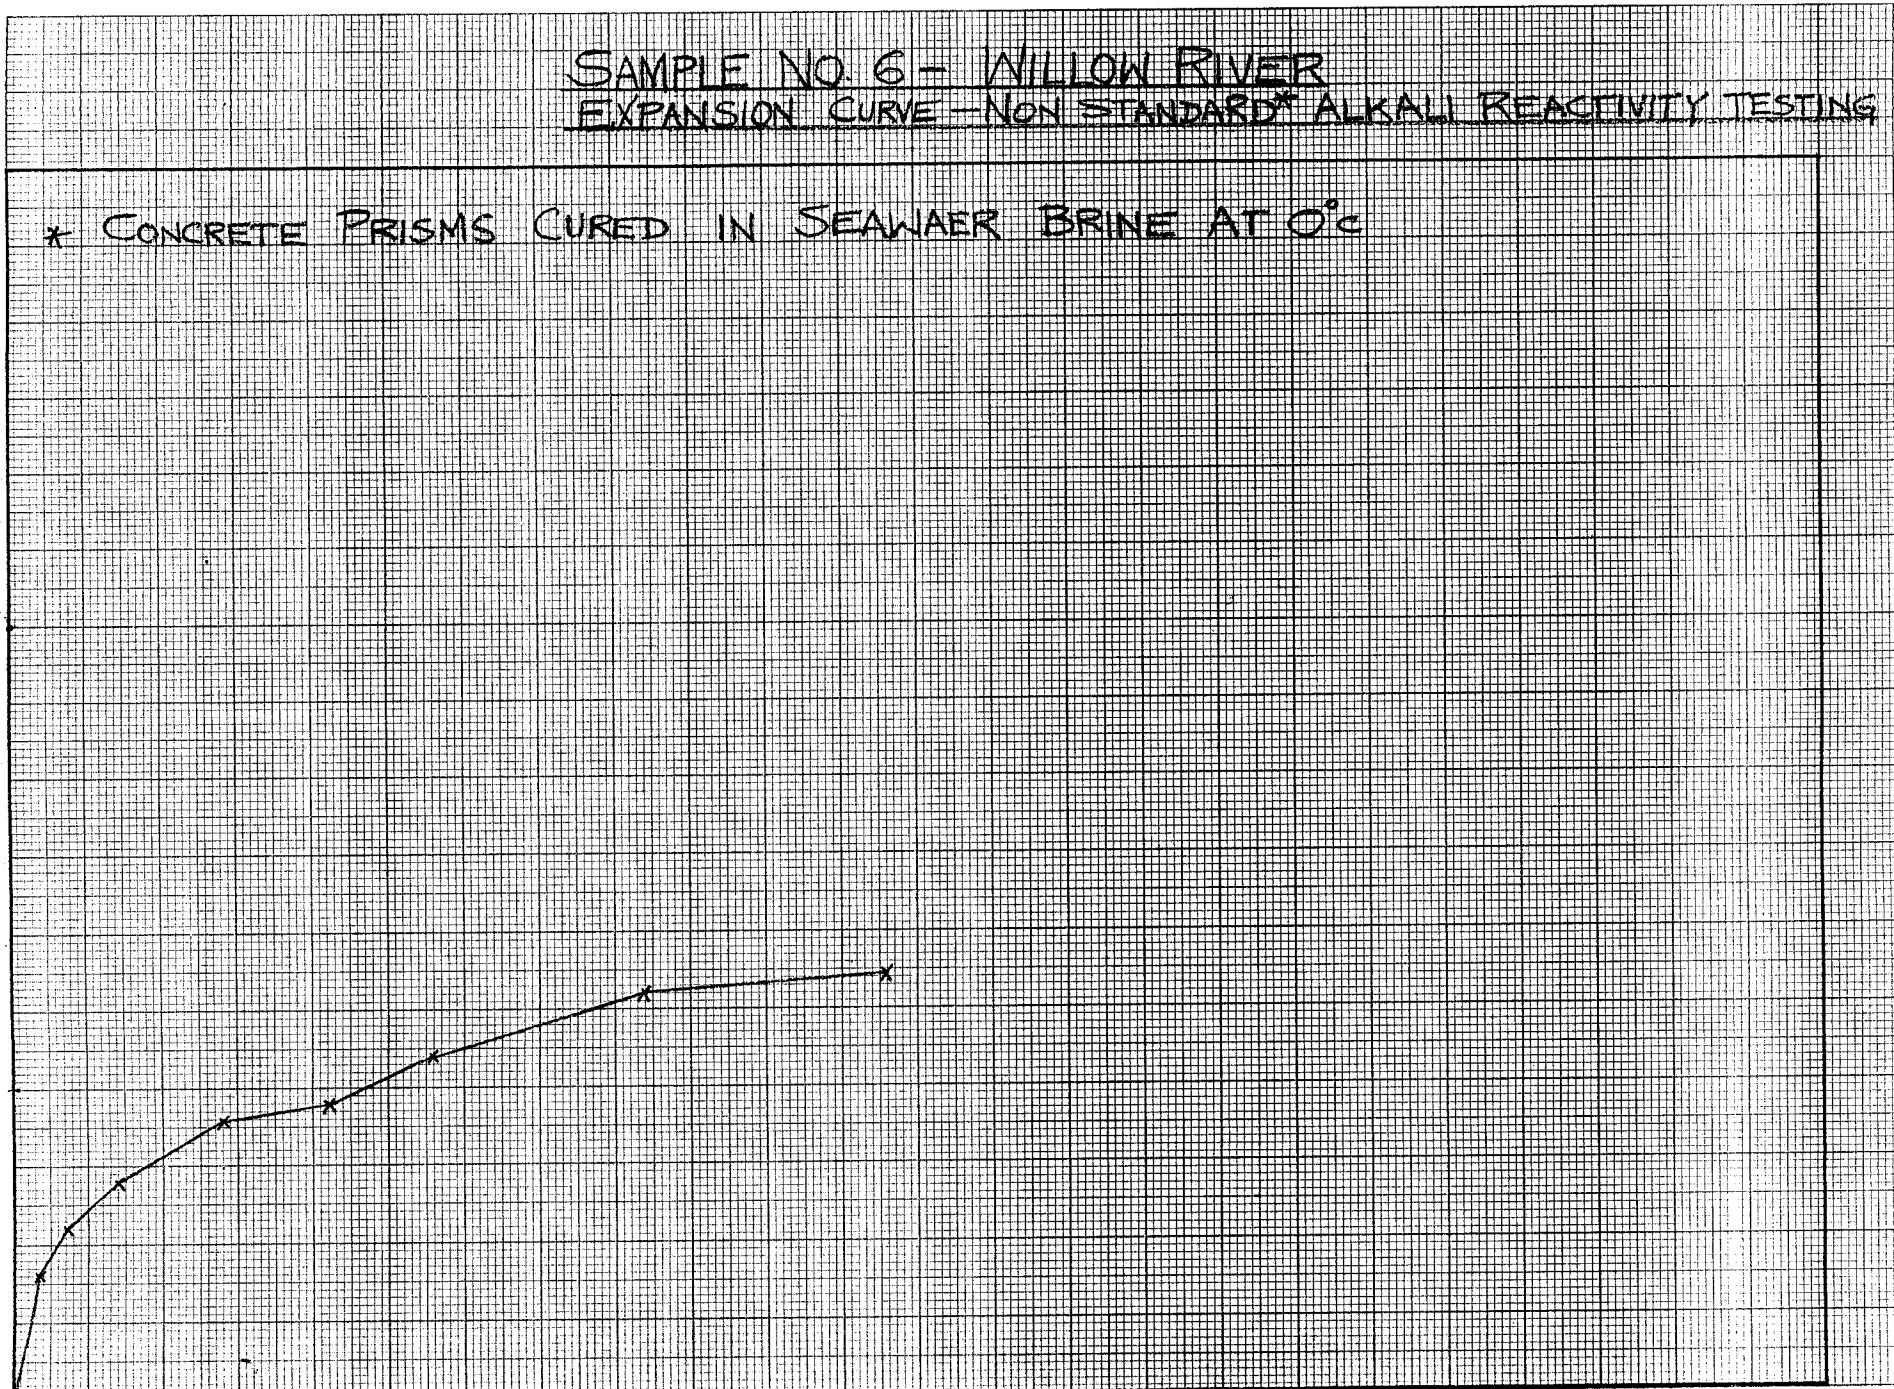 SAMPLE NO. 6 - WILLOW RIVER
EXPANSION CURVE - NON STANDARD* ALKALI REACTIVITY TESTING
* CONCRETE PRISMS CURED IN SEAWAER BRINE AT 0°C